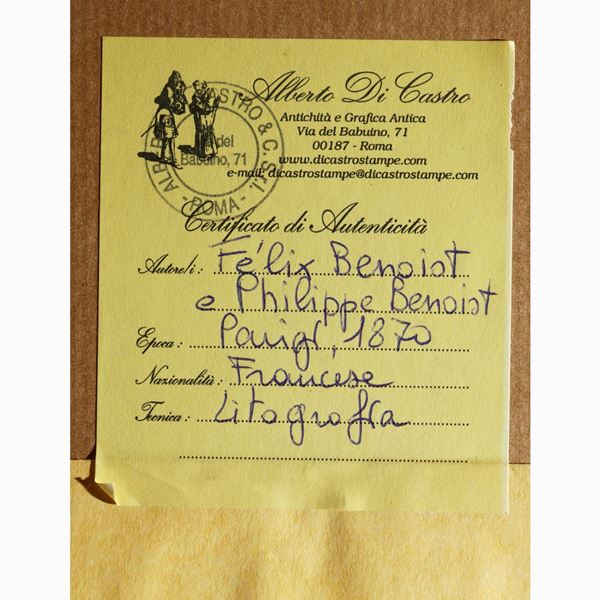 Alberto Di Castro
Antichità e Grafica Antica
Via del Babuino, 71
00187 - Roma
www.dicastrostampe.com
e-mail: dicastrostampe@dicastrostampe.com
CASTRO & C. S.r.l.
del
Babuino, 71
- ROMA -
Certificato di Autenticità
Autore/i : Félix Benoist
e Philippe Benoist
Epoca : Parigi, 1870
Nazionalità : Francese
Tecnica : Litografia